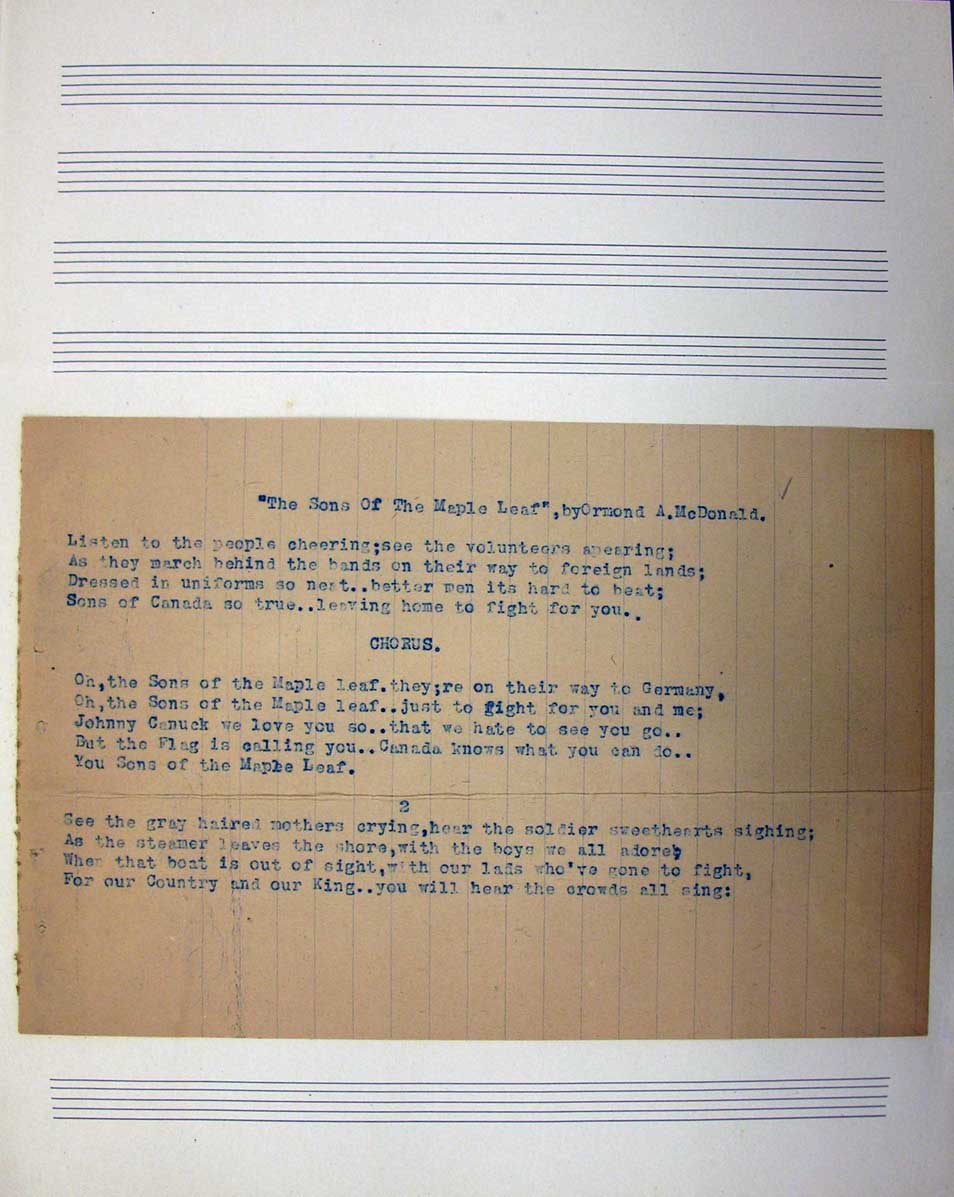 "The Sons Of The Maple Leaf",byOrmond A.McDonald.
Listen to the people cheering;see the volunteers apearing;
As they march behind the bands on their way to foreign lands;
Dressed in uniforms so neat..better men its hard to beat;
Sons of Canada so true..leaving home to fight for you..
CHORUS.
Oh,the Sons of the Maple leaf.they;re on their way to Germany,
Oh,the Sons of the Maple leaf..just to fight for you and me;
Johnny Canuck we love you so..that we hate to see you go..
But the Flag is calling you..Canada knows what you can do..
You Sons of the Maple Leaf.
2
See the gray haired mothers crying,hear the soldier sweethearts sighing;
As the steamer leaves the shore,with the boys we all adore;
When that boat is out of sight,with our lads who've gone to fight,
For our Country and our King..you will hear the crowds all sing: